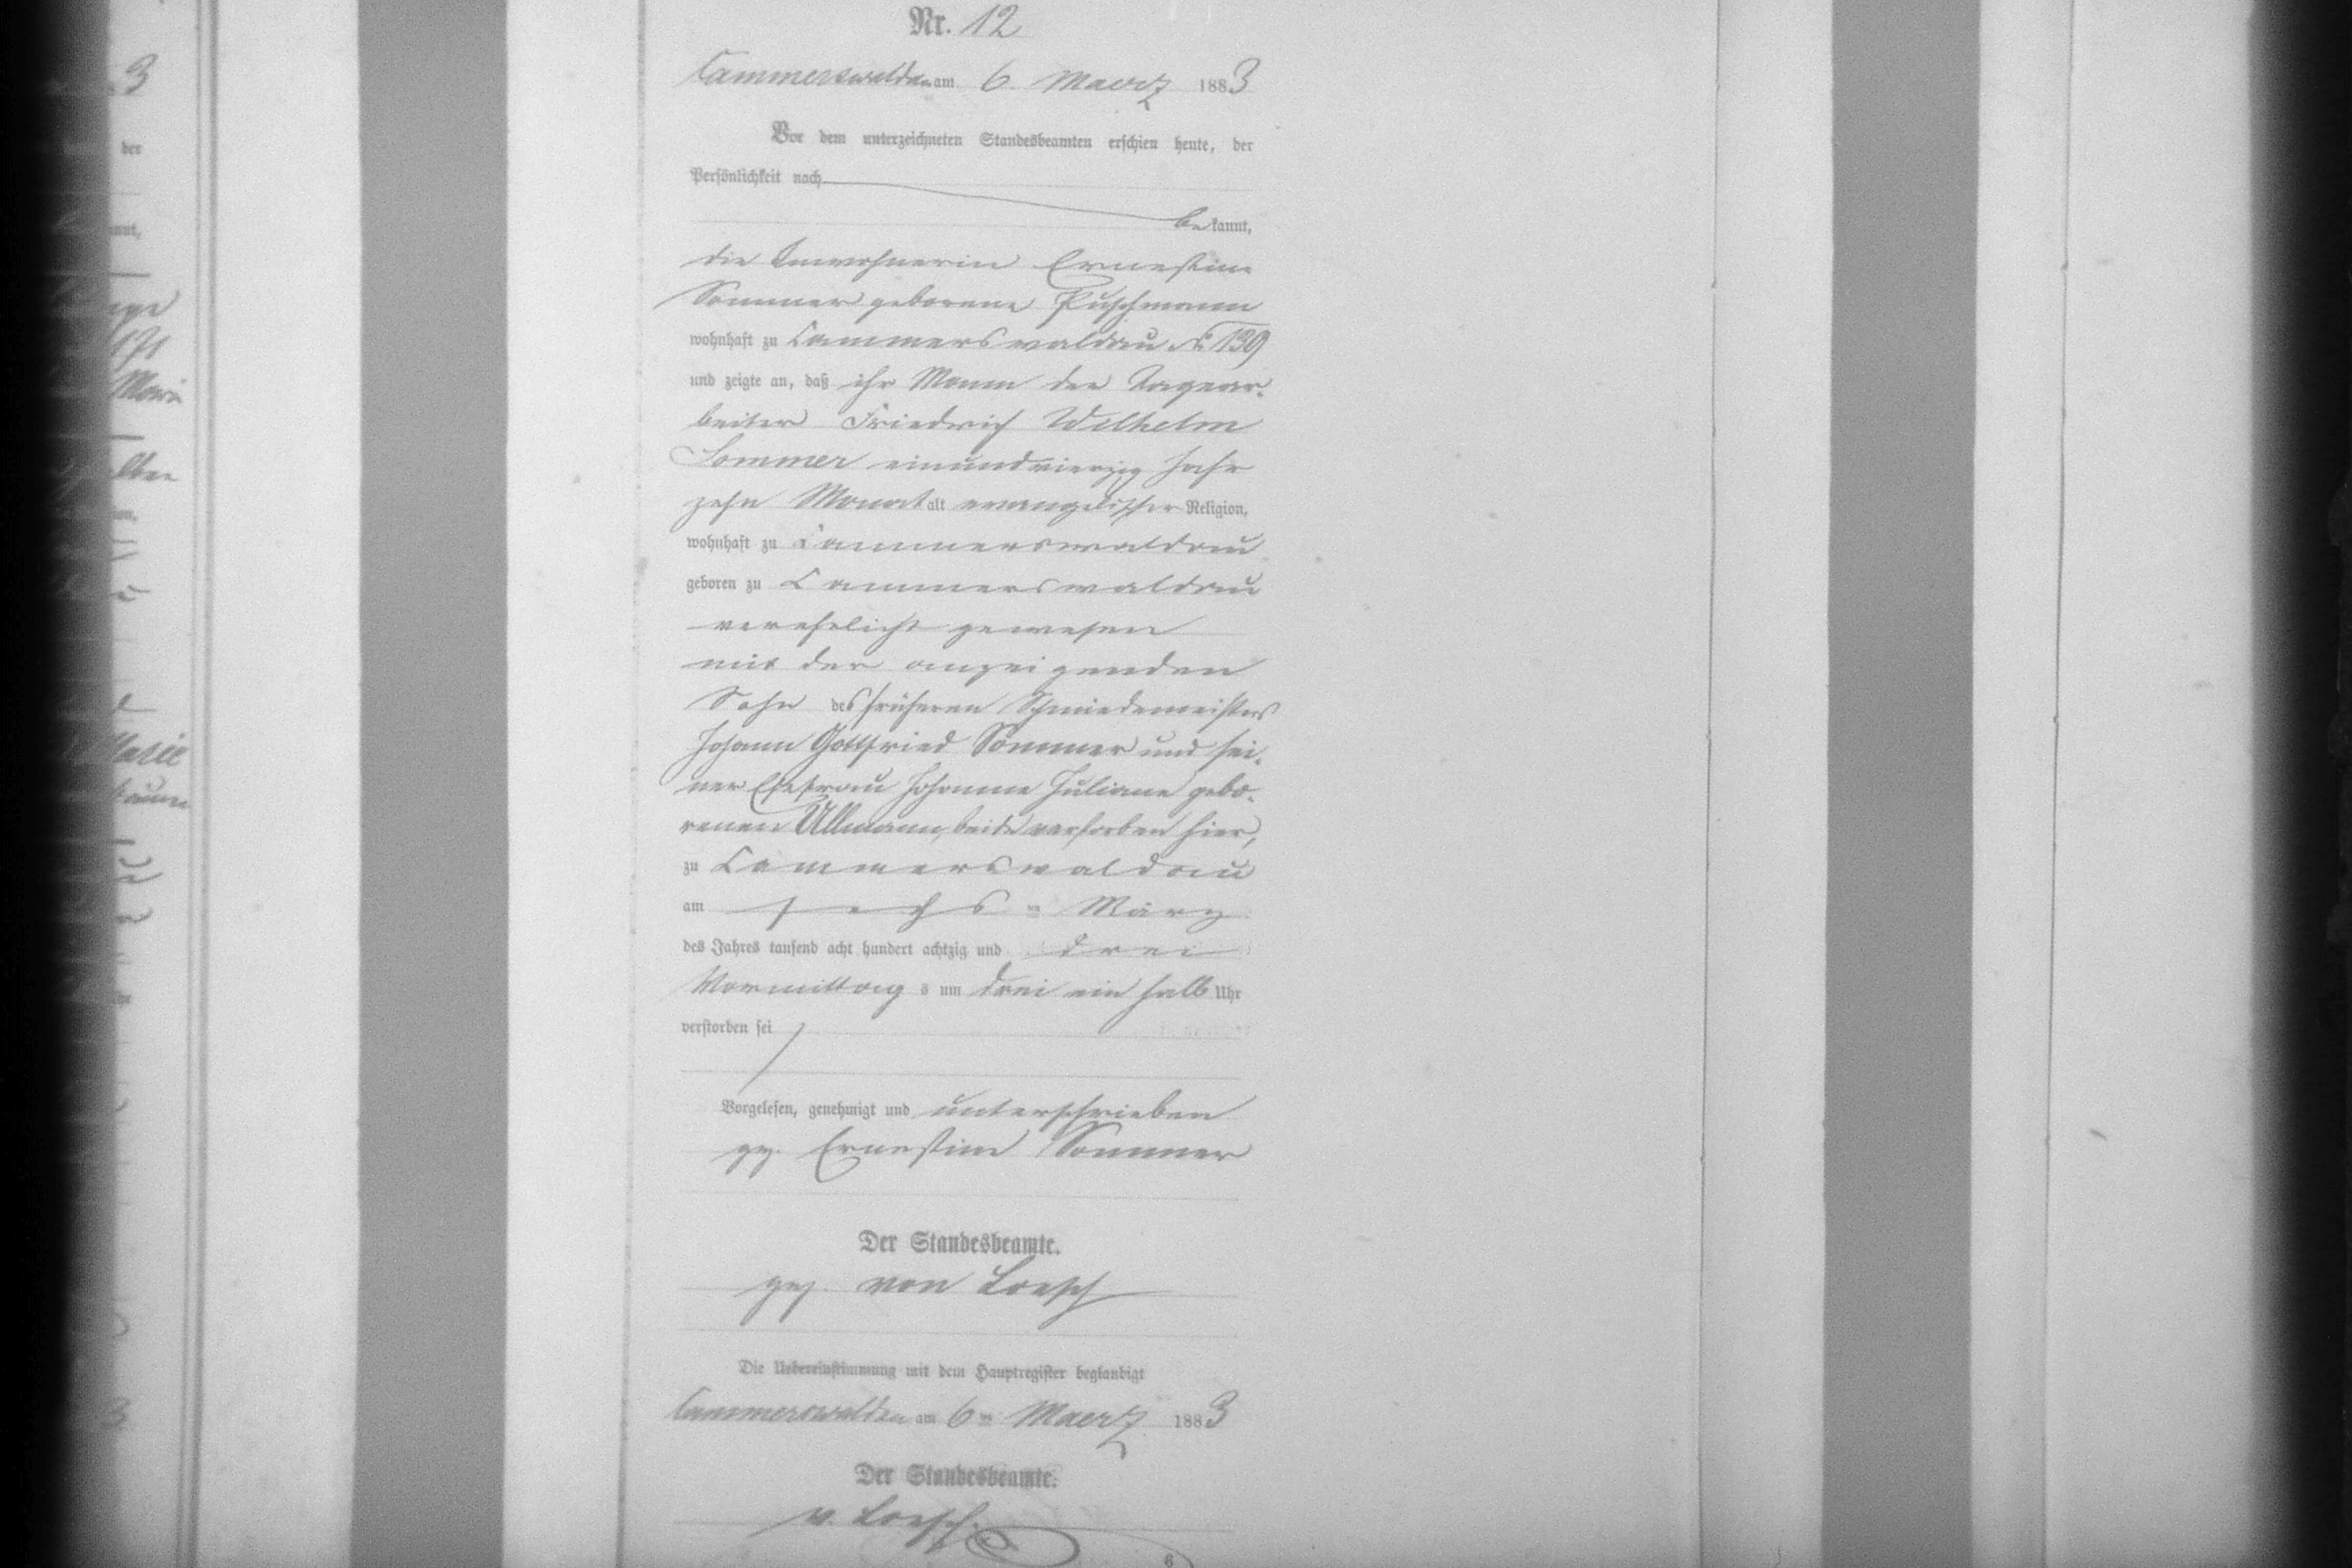 Nr. 12
Cammerswaldau am 6. Maerz 1883
Vor dem unterzeichneten Standesbeamten erschien heute, der
Persönlichkeit nach
bekannt,
die Inwohnerin Ernestine
Sommer geborene Puschmann
wohnhaft zu Cammerswaldau No 139
und zeigte an, daß ihr Mann der Tagear-
beiter Friedrich Wilhelm
Sommer einundvierzig Jahr
zehn Monat alt evangelischer Religion,
wohnhaft zu Cammerswaldau
geboren zu Cammerswaldau
verehelicht gewesen
mit der anzeigenden
Sohn des früheren Schmiedemeisters
Johann Gottfried Sommer und sei-
ner Ehefrau Johanne Juliane gebo-
renen Ullmann, beide verstorben hier,
zu Cammerswaldau
am sechs ten März
des Jahres tausend acht hundert achtzig und drei
Vormittags um drei ein halb Uhr
verstorben sei
Vorgelesen, genehmigt und unterschrieben
gez. Ernestine Sommer
Der Standesbeamte.
gez. von Loesch
Die Uebereinstimmung mit dem Hauptregister beglaubigt
Cammerswaldau am 6ten Maerz 1883
Der Standesbeamte.
v. Loesch.
6